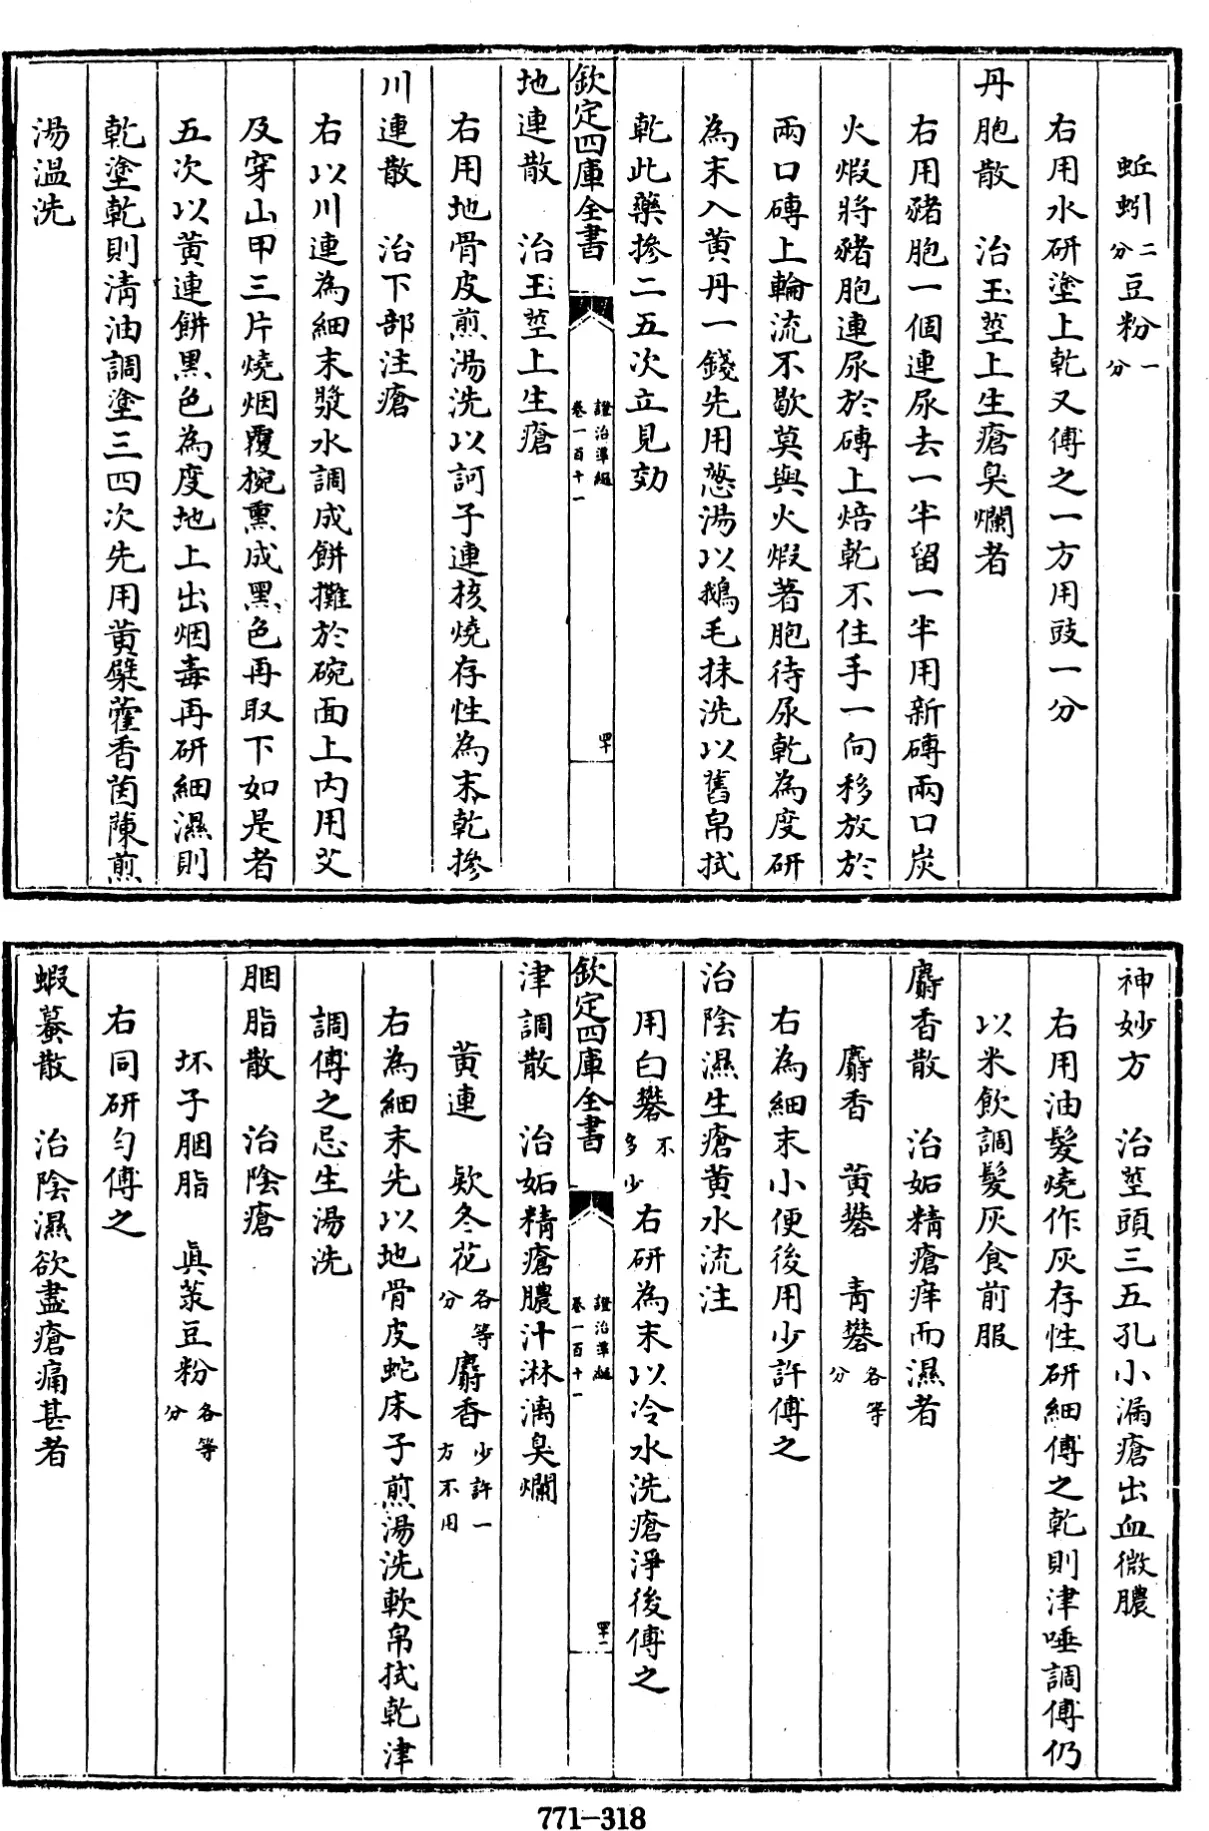 蚯蚓二分豆粉一分
右用水研塗上乾又傅之一方用豉一分
丹胞散　治玉莖上生瘡臭爛者
右用豬胞一個連尿去一半留一半用新磚兩口炭
火煆將豬胞連尿於磚上焙乾不住手一向移放於
兩口磚上輪流不歇莫與火煆著胞待尿乾為度研
為末入黃丹一錢先用蔥湯以鵝毛抹洗以舊帛拭
乾此藥摻二五次立見効
欽定四庫全書
證治準繩
卷一百十一
四十
地連散　治玉莖上生瘡
右用地骨皮煎湯洗以訶子連核燒存性為末乾摻
川連散　治下部注瘡
右以川連為細末漿水調成餅攤於碗面上內用艾
及穿山甲三片燒烟覆椀熏成黑色再取下如是者
五次以黃連餅黑色為度地上出烟毒再研細濕則
乾塗乾則清油調塗三四次先用黃檗藿香茵陳煎
湯溫洗
神妙方　治莖頭三五孔小漏瘡出血微膿
右用油髮燒作灰存性研細傅之乾則津唾調傅仍
以米飲調髮灰食前服
麝香散　治妬精瘡痒而濕者
麝香　黃礬　青礬各等分
右為細末小便後用少許傅之
治陰濕生瘡黃水流注
用白礬不多少右研為末以冷水洗瘡淨後傅之
欽定四庫全書
證治準繩
卷一百十一
四十一
津調散　治妬精瘡膿汁淋漓臭爛
黃連　欵冬花各等分麝香少許一方不用
右為細末先以地骨皮蛇床子煎湯洗軟帛拭乾津
調傅之忌生湯洗
胭脂散　治陰瘡
坏子胭脂　真菉豆粉各等分
右同研勻傅之
蝦蟇散　治陰濕欲盡瘡痛甚者
771–318